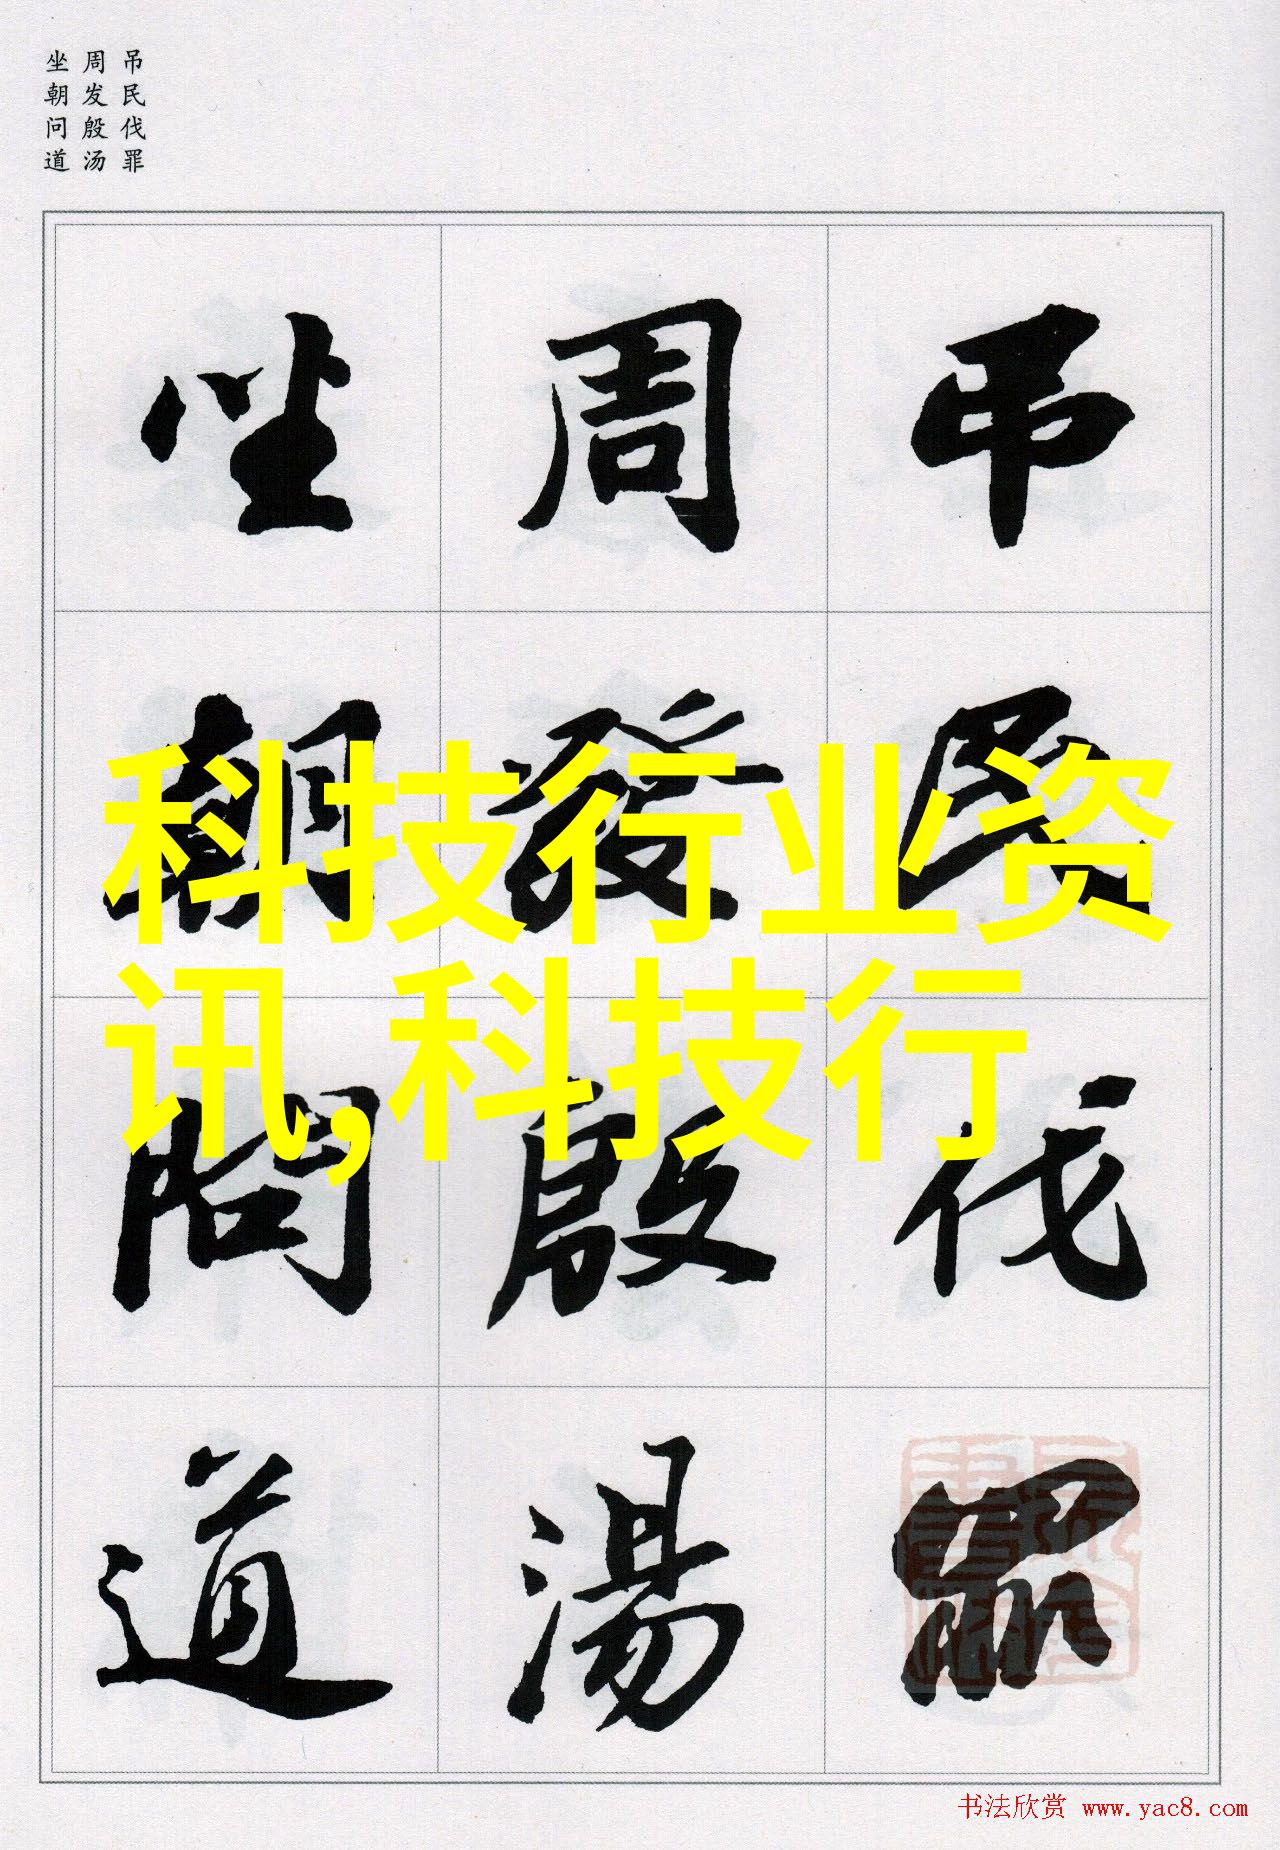 吊民伐罪
周发殷汤
坐朝问道
吊民伐罪
周發殷湯
坐朝問道
科技行业资
讯,科技行
书法欣赏 www.yac8.com